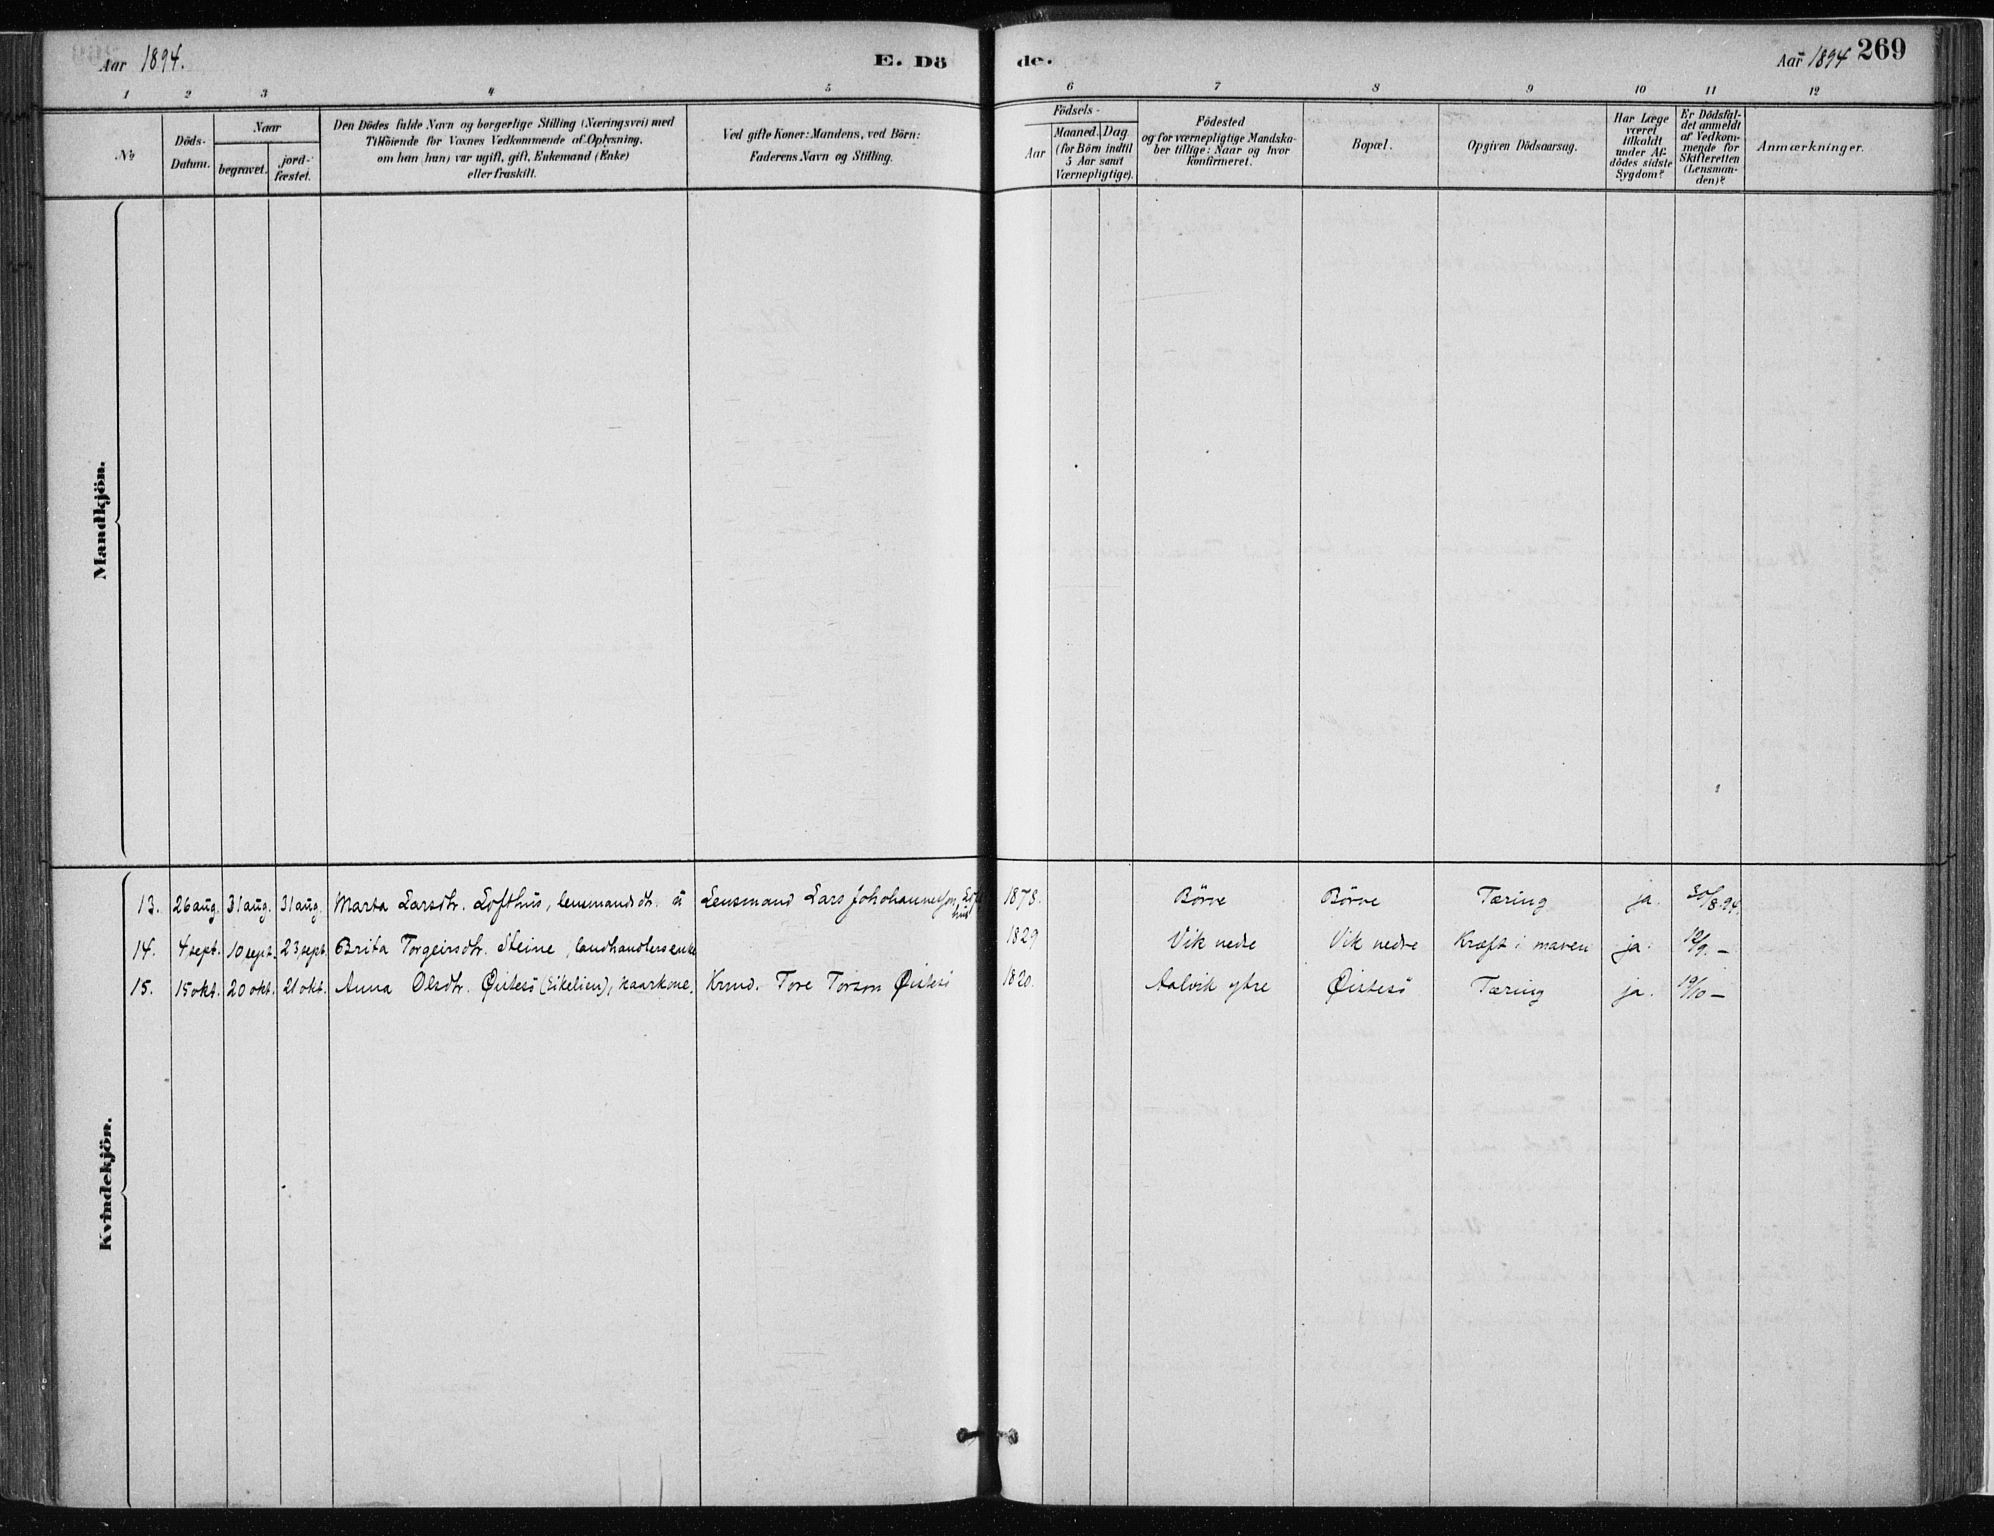 Aar 1894. E. Dö de. Aar 1894 269
1 2 3 4 5 6 7 8 9 10 11 12
No
Döds-
Datum.
Naar
begravet.
jord-
fæstet.
Den Dödes fulde Navn og borgerlige Stilling (Næringsvei) med
Tilföiende for Voxnes Vedkommende af Oplysning,
om han (hun) var ugift, gift, Enkemand (Enke)
eller fraskilt.
Ved gifte Koner: Mandens, ved Börn:
Faderens Navn og Stilling.
Födsels-
Aar
Maaned. Dag.
(for Börn indtil
5 Aar samt
Værnepligtige).
Födested
og for værnepligtige Mandska-
ber tillige: Naar og hvor
Konfirmeret.
Bopæl.
Opgiven Dödsaarsag.
Har Læge
været
tilkaldt
under Af-
dödes sidste
Sygdom?
Er Dödsfal-
det anmeldt
af Vedkom-
mende for
Skifteretten
(Lensman-
den)?
Anmærkninger.
Mandkjön.
Kvindekjön.
13. 26 aug. 31 aug. 31 aug. Marta Larsdtr. Lofthus, lensmandsdtr. u Lensmand Lars Johohannesson Loft 1878. Börve Börve Tæring ja. 30/8.94.
hus
14. 4 sept. 10 sept. 23 sept. Brita Torgeirsdtr. Steine, landhandlersenke 1829 Vik nedre Vik nedre Kræft i maven ja. 12/9. –
15. 15 okt. 20 okt. 21 okt. Anna Olsdtr. Öistesö (Eikelien), kaarkone. Kmd. Tore Torson Öistesö 1820. Aalvik ytre Öistesö Tæring ja. 19/10 –